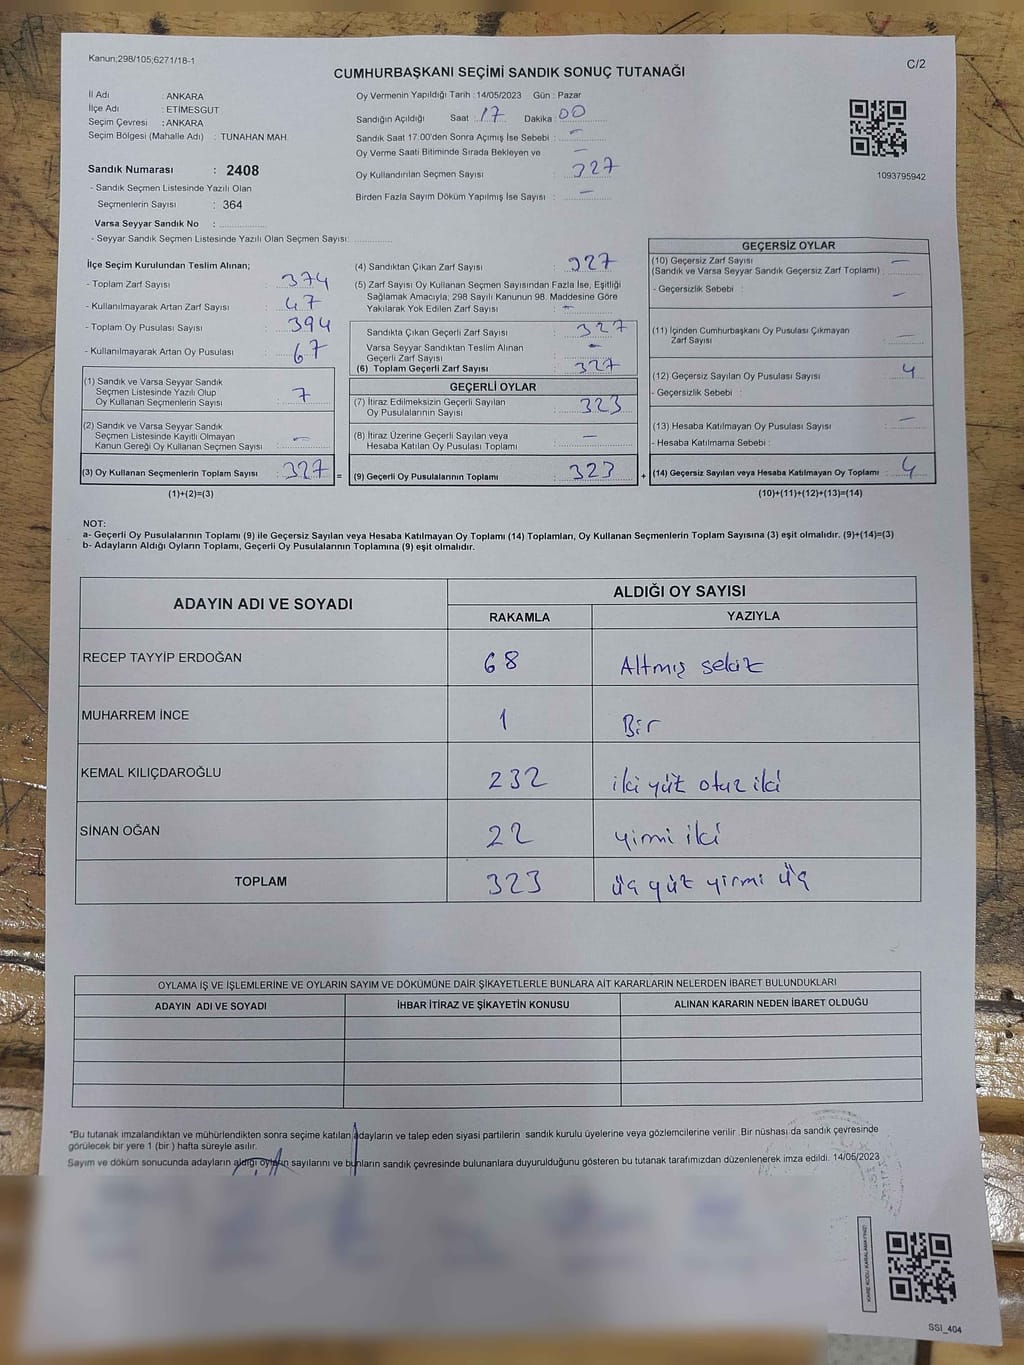 Kanun;298/105;6271/18-1
C/2
CUMHURBAŞKANI SEÇİMİ SANDIK SONUÇ TUTANAĞI
İl Adı : ANKARA
İlçe Adı : ETİMESGUT
Seçim Çevresi : ANKARA
Seçim Bölgesi (Mahalle Adı) : TUNAHAN MAH.
Sandık Numarası : 2408
- Sandık Seçmen Listesinde Yazılı Olan
Seçmenlerin Sayısı : 364
Varsa Seyyar Sandık No :
- Seyyar Sandık Seçmen Listesinde Yazılı Olan Seçmen Sayısı:
Oy Vermenin Yapıldığı Tarih : 14/05/2023 Gün : Pazar
Sandığın Açıldığı Saat : 17 Dakika : 00
Sandık Saat 17:00'den Sonra Açımış İse Sebebi : -
Oy Verme Saati Bitiminde Sırada Bekleyen ve -
Oy Kullandırılan Seçmen Sayısı : 327
Birden Fazla Sayım Döküm Yapılmış İse Sayısı : -
1093795942
İlçe Seçim Kurulundan Teslim Alınan;
- Toplam Zarf Sayısı : 374
- Kullanılmayarak Artan Zarf Sayısı : 47
- Toplam Oy Pusulası Sayısı : 394
- Kullanılmayarak Artan Oy Pusulası : 67
(1) Sandık ve Varsa Seyyar Sandık
Seçmen Listesinde Yazılı Olup
Oy Kullanan Seçmenlerin Sayısı : 7
(2) Sandık ve Varsa Seyyar Sandık
Seçmen Listesinde Kayıtlı Olmayan
Kanun Gereği Oy Kullanan Seçmen Sayısı : -
(3) Oy Kullanan Seçmenlerin Toplam Sayısı : 327 =
(1)+(2)=(3)
(4) Sandıktan Çıkan Zarf Sayısı : 327
(5) Zarf Sayısı Oy Kullanan Seçmen Sayısından Fazla İse, Eşitliği
Sağlamak Amacıyla; 298 Sayılı Kanunun 98. Maddesine Göre
Yakılarak Yok Edilen Zarf Sayısı : -
Sandıkta Çıkan Geçerli Zarf Sayısı : 327
Varsa Seyyar Sandıktan Teslim Alınan
Geçerli Zarf Sayısı : -
(6) Toplam Geçerli Zarf Sayısı : 327
GEÇERLİ OYLAR
(7) İtiraz Edilmeksizin Geçerli Sayılan
Oy Pusulalarının Sayısı : 323
(8) İtiraz Üzerine Geçerli Sayılan veya
Hesaba Katılan Oy Pusulası Toplamı : -
(9) Geçerli Oy Pusulalarının Toplamı : 323 +
GEÇERSİZ OYLAR
(10) Geçersiz Zarf Sayısı : -
(Sandık ve Varsa Seyyar Sandık Geçersiz Zarf Toplamı)
- Geçersizlik Sebebi : -
(11) İçinden Cumhurbaşkanı Oy Pusulası Çıkmayan
Zarf Sayısı : -
(12) Geçersiz Sayılan Oy Pusulası Sayısı : 4
- Geçersizlik Sebebi :
(13) Hesaba Katılmayan Oy Pusulası Sayısı : -
- Hesaba Katılmama Sebebi :
(14) Geçersiz Sayılan veya Hesaba Katılmayan Oy Toplamı : 4
(10)+(11)+(12)+(13)=(14)
NOT:
a- Geçerli Oy Pusulalarının Toplamı (9) ile Geçersiz Sayılan veya Hesaba Katılmayan Oy Toplamı (14) Toplamları, Oy Kullanan Seçmenlerin Toplam Sayısına (3) eşit olmalıdır. (9)+(14)=(3)
b- Adayların Aldığı Oyların Toplamı, Geçerli Oy Pusulalarının Toplamına (9) eşit olmalıdır.
ADAYIN ADI VE SOYADI ALDIĞI OY SAYISI
RAKAMLA YAZIYLA
RECEP TAYYİP ERDOĞAN 68 Altmış sekiz
MUHARREM İNCE 1 Bir
KEMAL KILIÇDAROĞLU 232 iki yüz otuz iki
SİNAN OĞAN 22 yirmi iki
TOPLAM 323 üç yüz yirmi üç
OYLAMA İŞ VE İŞLEMLERİNE VE OYLARIN SAYIM VE DÖKÜMÜNE DAİR ŞİKAYETLERLE BUNLARA AİT KARARLARIN NELERDEN İBARET BULUNDUKLARI
ADAYIN ADI VE SOYADI İHBAR İTİRAZ VE ŞİKAYETİN KONUSU ALINAN KARARIN NEDEN İBARET OLDUĞU
*Bu tutanak imzalandıktan ve mühürlendikten sonra seçime katılan adayların ve talep eden siyasi partilerin sandık kurulu üyelerine veya gözlemcilerine verilir. Bir nüshası da sandık çevresinde
görülecek bir yere 1 (bir) hafta süreyle asılır.
Sayım ve döküm sonucunda adayların aldığı oyların sayılarını ve bunların sandık çevresinde bulunanlara duyurulduğunu gösteren bu tutanak tarafımızdan düzenlenerek imza edildi. 14/05/2023
KARE KODU KARALAMAYINIZ!
SSI_404